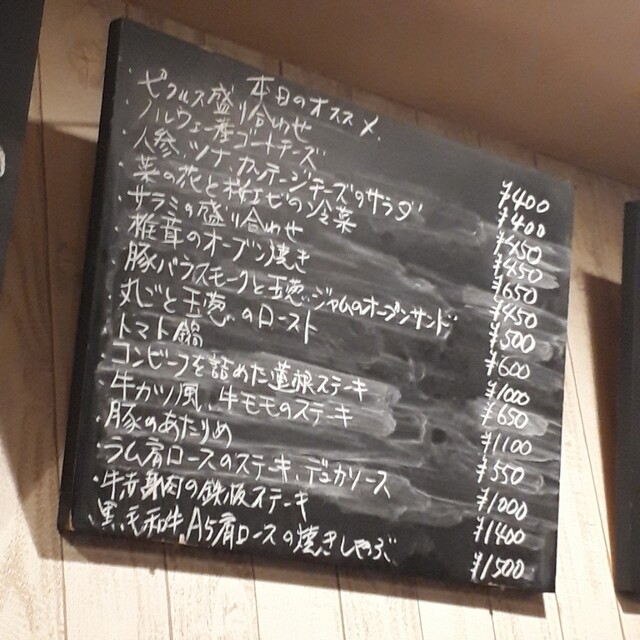 本日のオススメ
・ピクルス盛り合わせ ¥400
・ノルウェー産ゴートチーズ ¥400
・人参、ツナ、カッテージチーズのサラダ ¥450
・菜の花と桜エビの冷菜 ¥450
・サラミの盛り合わせ ¥650
・椎茸のオーブン焼き ¥450
・豚バラスモークと玉葱ジャムのオーブンサンド ¥500
・丸ごと玉葱のロースト ¥600
・トマト鍋 ¥1000
・コンビーフを詰めた蓮根ステーキ ¥650
・牛カツ風、牛モモのステーキ ¥1100
・豚のあたりめ ¥550
・ラム肩ロースのステーキ、デュカソース ¥1000
・牛赤身肉の鉄板ステーキ ¥1400
・黒毛和牛A5肩ロースの焼きしゃぶ ¥1500